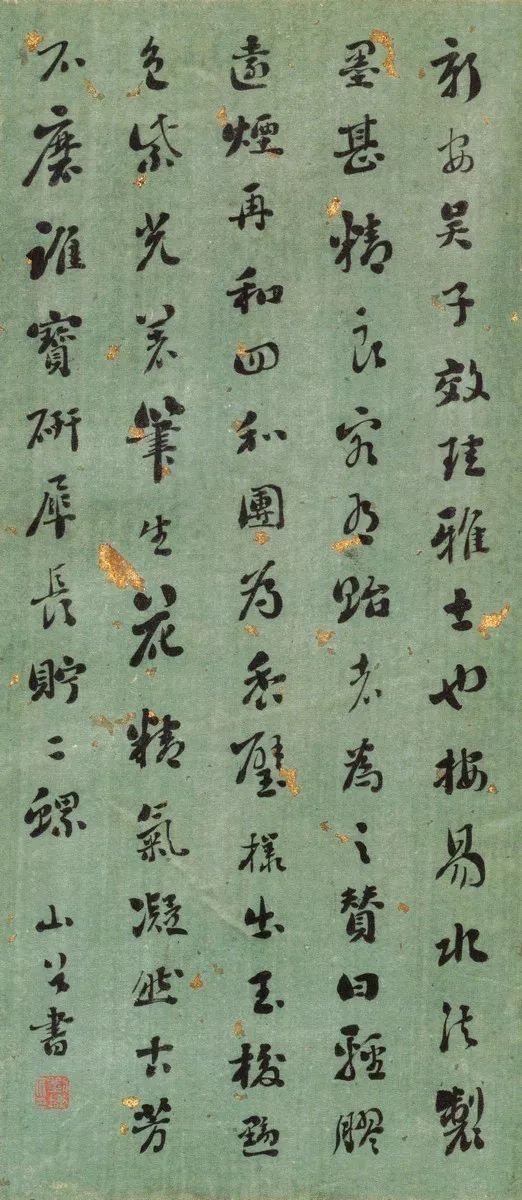 新安吳子效珪雅士也按易水法製
墨甚精良客有貽者為之贊曰輕膠
遠煙再和四和團為香璧樣出玉梭黝
色紫光着筆生花精氣凝然古芳
不磨誰寶研犀長貯二螺 山公書